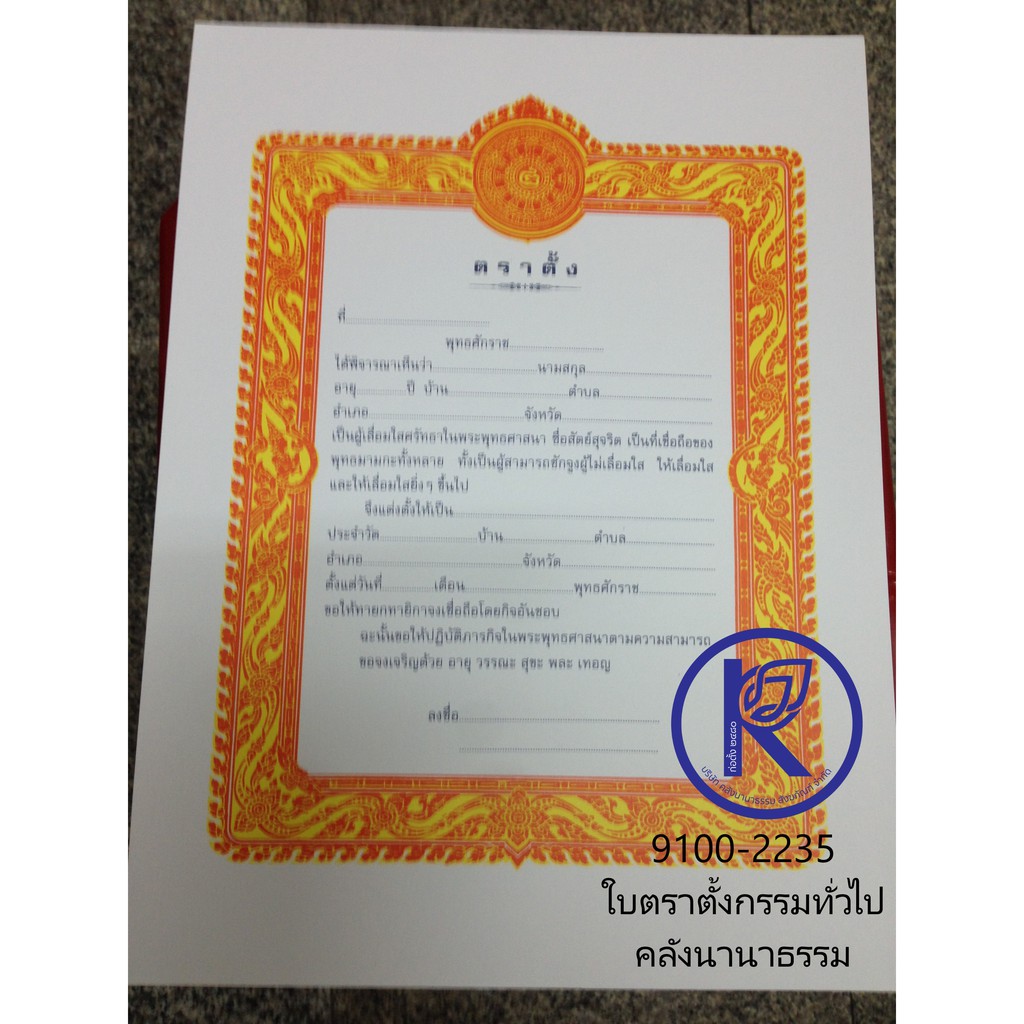 ตราตั้ง
ที่
พุทธศักราช
ได้พิจารณาเห็นว่า นามสกุล
อายุ ปี บ้าน ตำบล
อำเภอ จังหวัด
เป็นผู้เลื่อมใสศรัทธาในพระพุทธศาสนา ซื่อสัตย์สุจริต เป็นที่เชื่อถือของ
พุทธมามกะทั้งหลาย ทั้งเป็นผู้สามารถชักจูงผู้ไม่เลื่อมใส ให้เลื่อมใส
และให้เลื่อมใสยิ่งๆ ขึ้นไป
จึงแต่งตั้งให้เป็น
ประจำวัด บ้าน ตำบล
อำเภอ จังหวัด
ตั้งแต่วันที่ เดือน พุทธศักราช
ขอให้ทายกทายิกาจงเชื่อถือโดยกิจอันชอบ
ฉะนั้นขอให้ปฏิบัติภารกิจในพระพุทธศาสนาตามความสามารถ
ขอจงเจริญด้วย อายุ วรรณะ สุขะ พละ เทอญ
ลงชื่อ
ก่อตั้ง ๒๔๘๐
บริษัท คลังนานาธรรม สังฆภัณฑ์ จำกัด
9100-2235
ใบตราตั้งกรรมทั่วไป
คลังนานาธรรม